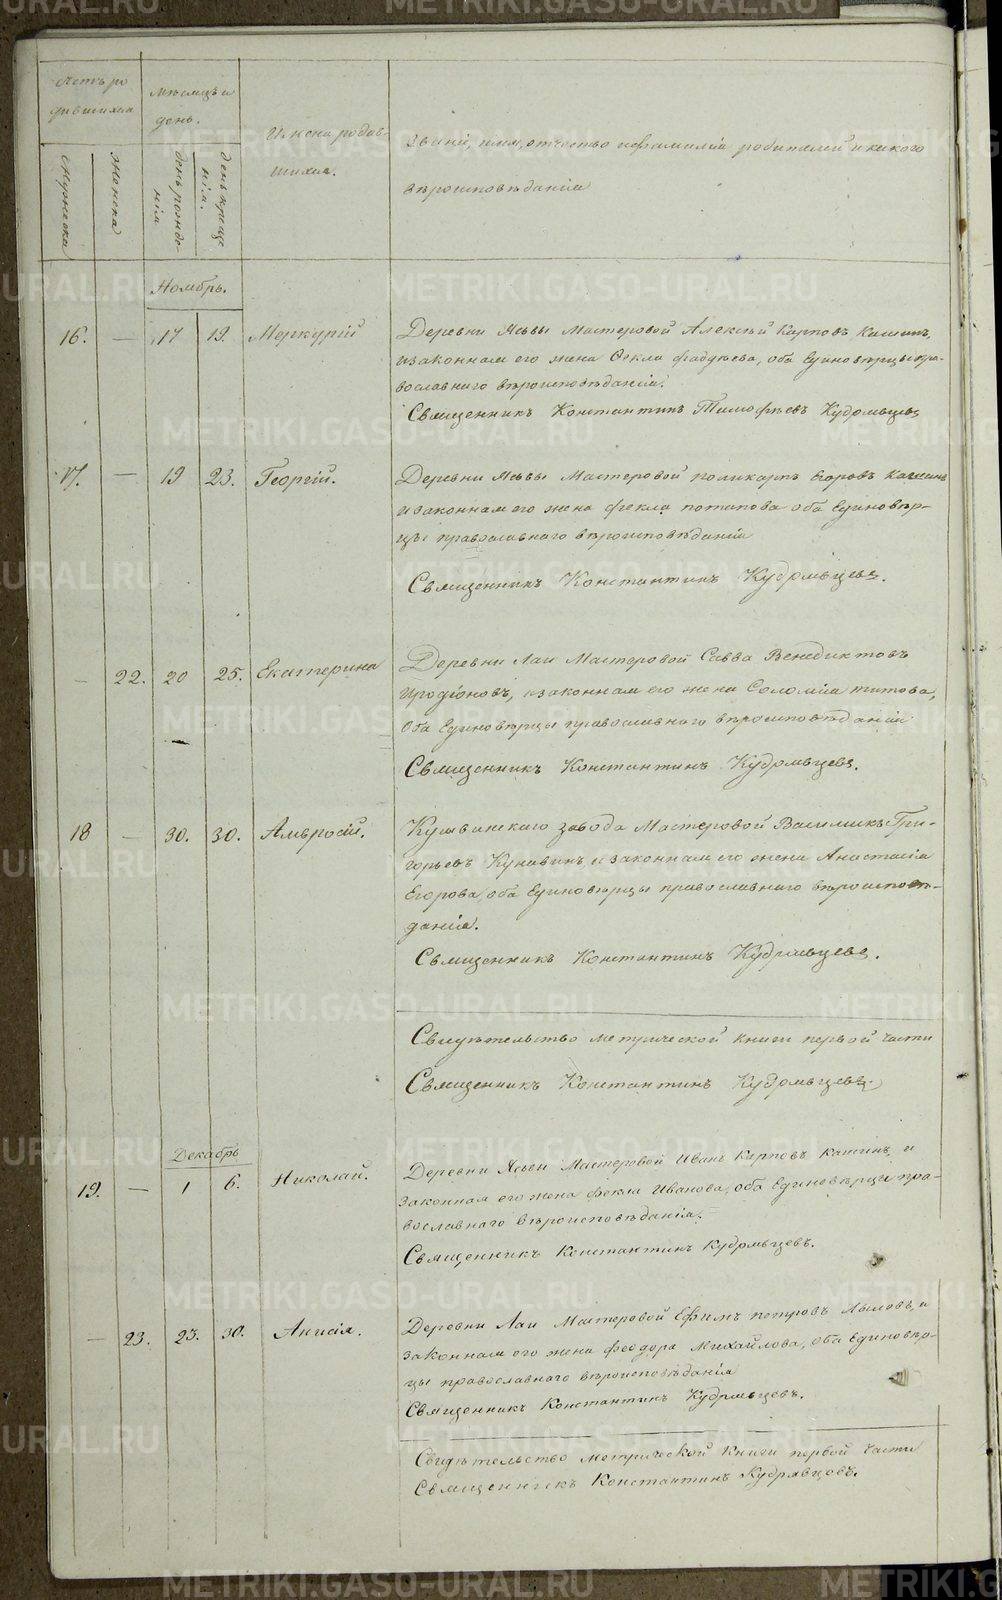 Счетъ ро
дившихся
Мѣсяцъ и
день.
Имена родив-
шихся.
Званіе, имя, отчество и фамилія родителей и какого
вѣроисповѣданія
мужеска
женска
день рожде
нія
день креще
нія.
Ноябрь.
16. — 17 19. Меркурій
Деревни Ясьвы Мастеровой Алексѣй Карповъ
и законная его жена Ѳекла Фадѣева, оба Единовѣрцы пра-
вославнаго вѣроисповѣданія.
Священникъ Константинъ Тимофѣевъ Кудрявцевъ
17. — 19 23. Георгій.
Деревни Ясьвы Мастеровой поликарпъ Егоровъ
и законная его жена фекла потапова оба Единовѣр-
цы православнаго вѣроисповѣданія
Священникъ Константинъ Кудрявцевъ.
— 22. 20 25. Екатерина
Деревни Лаи Мастеровой Савва Венедиктовъ
Иродіоновъ, и законная его жена Соломія титова,
Оба Единовѣрцы православнаго вѣроисповѣданія
Священникъ Константинъ Кудрявцевъ.
18 — 30. 30. Амвросій.
Кушвинскаго завода Мастеровой Василій Гри-
горьевъ Кунавинъ и законная его жена Анастасія
Егорова, оба Единовѣрцы православнаго вѣроисповѣ-
данія.
Священникъ Константинъ Кудрявцевъ.
Свидѣтельство метрической книги первой части
Священникъ Константинъ Кудрявцевъ
Декабрь
19. — 1 6. Николай.
Деревни Ясьвы Мастеровой Иванъ Карповъ и
законная его жена фекла Иванова, оба Единовѣрцы пра-
вославнаго вѣроисповѣданія.
Священникъ Константинъ Кудрявцевъ.
— 23. 23. 30. Анисія.
Деревни Лаи Мастеровой Ефимъ петровъ и
законная его жена феодора Михайлова, оба Единовѣр-
цы православнаго вѣроисповѣданія
Священникъ Константинъ Кудрявцевъ.
Свидѣтельство метрической книги первой части
Священникъ Константинъ Кудрявцевъ.
METRIKI.GASO-URAL.RU